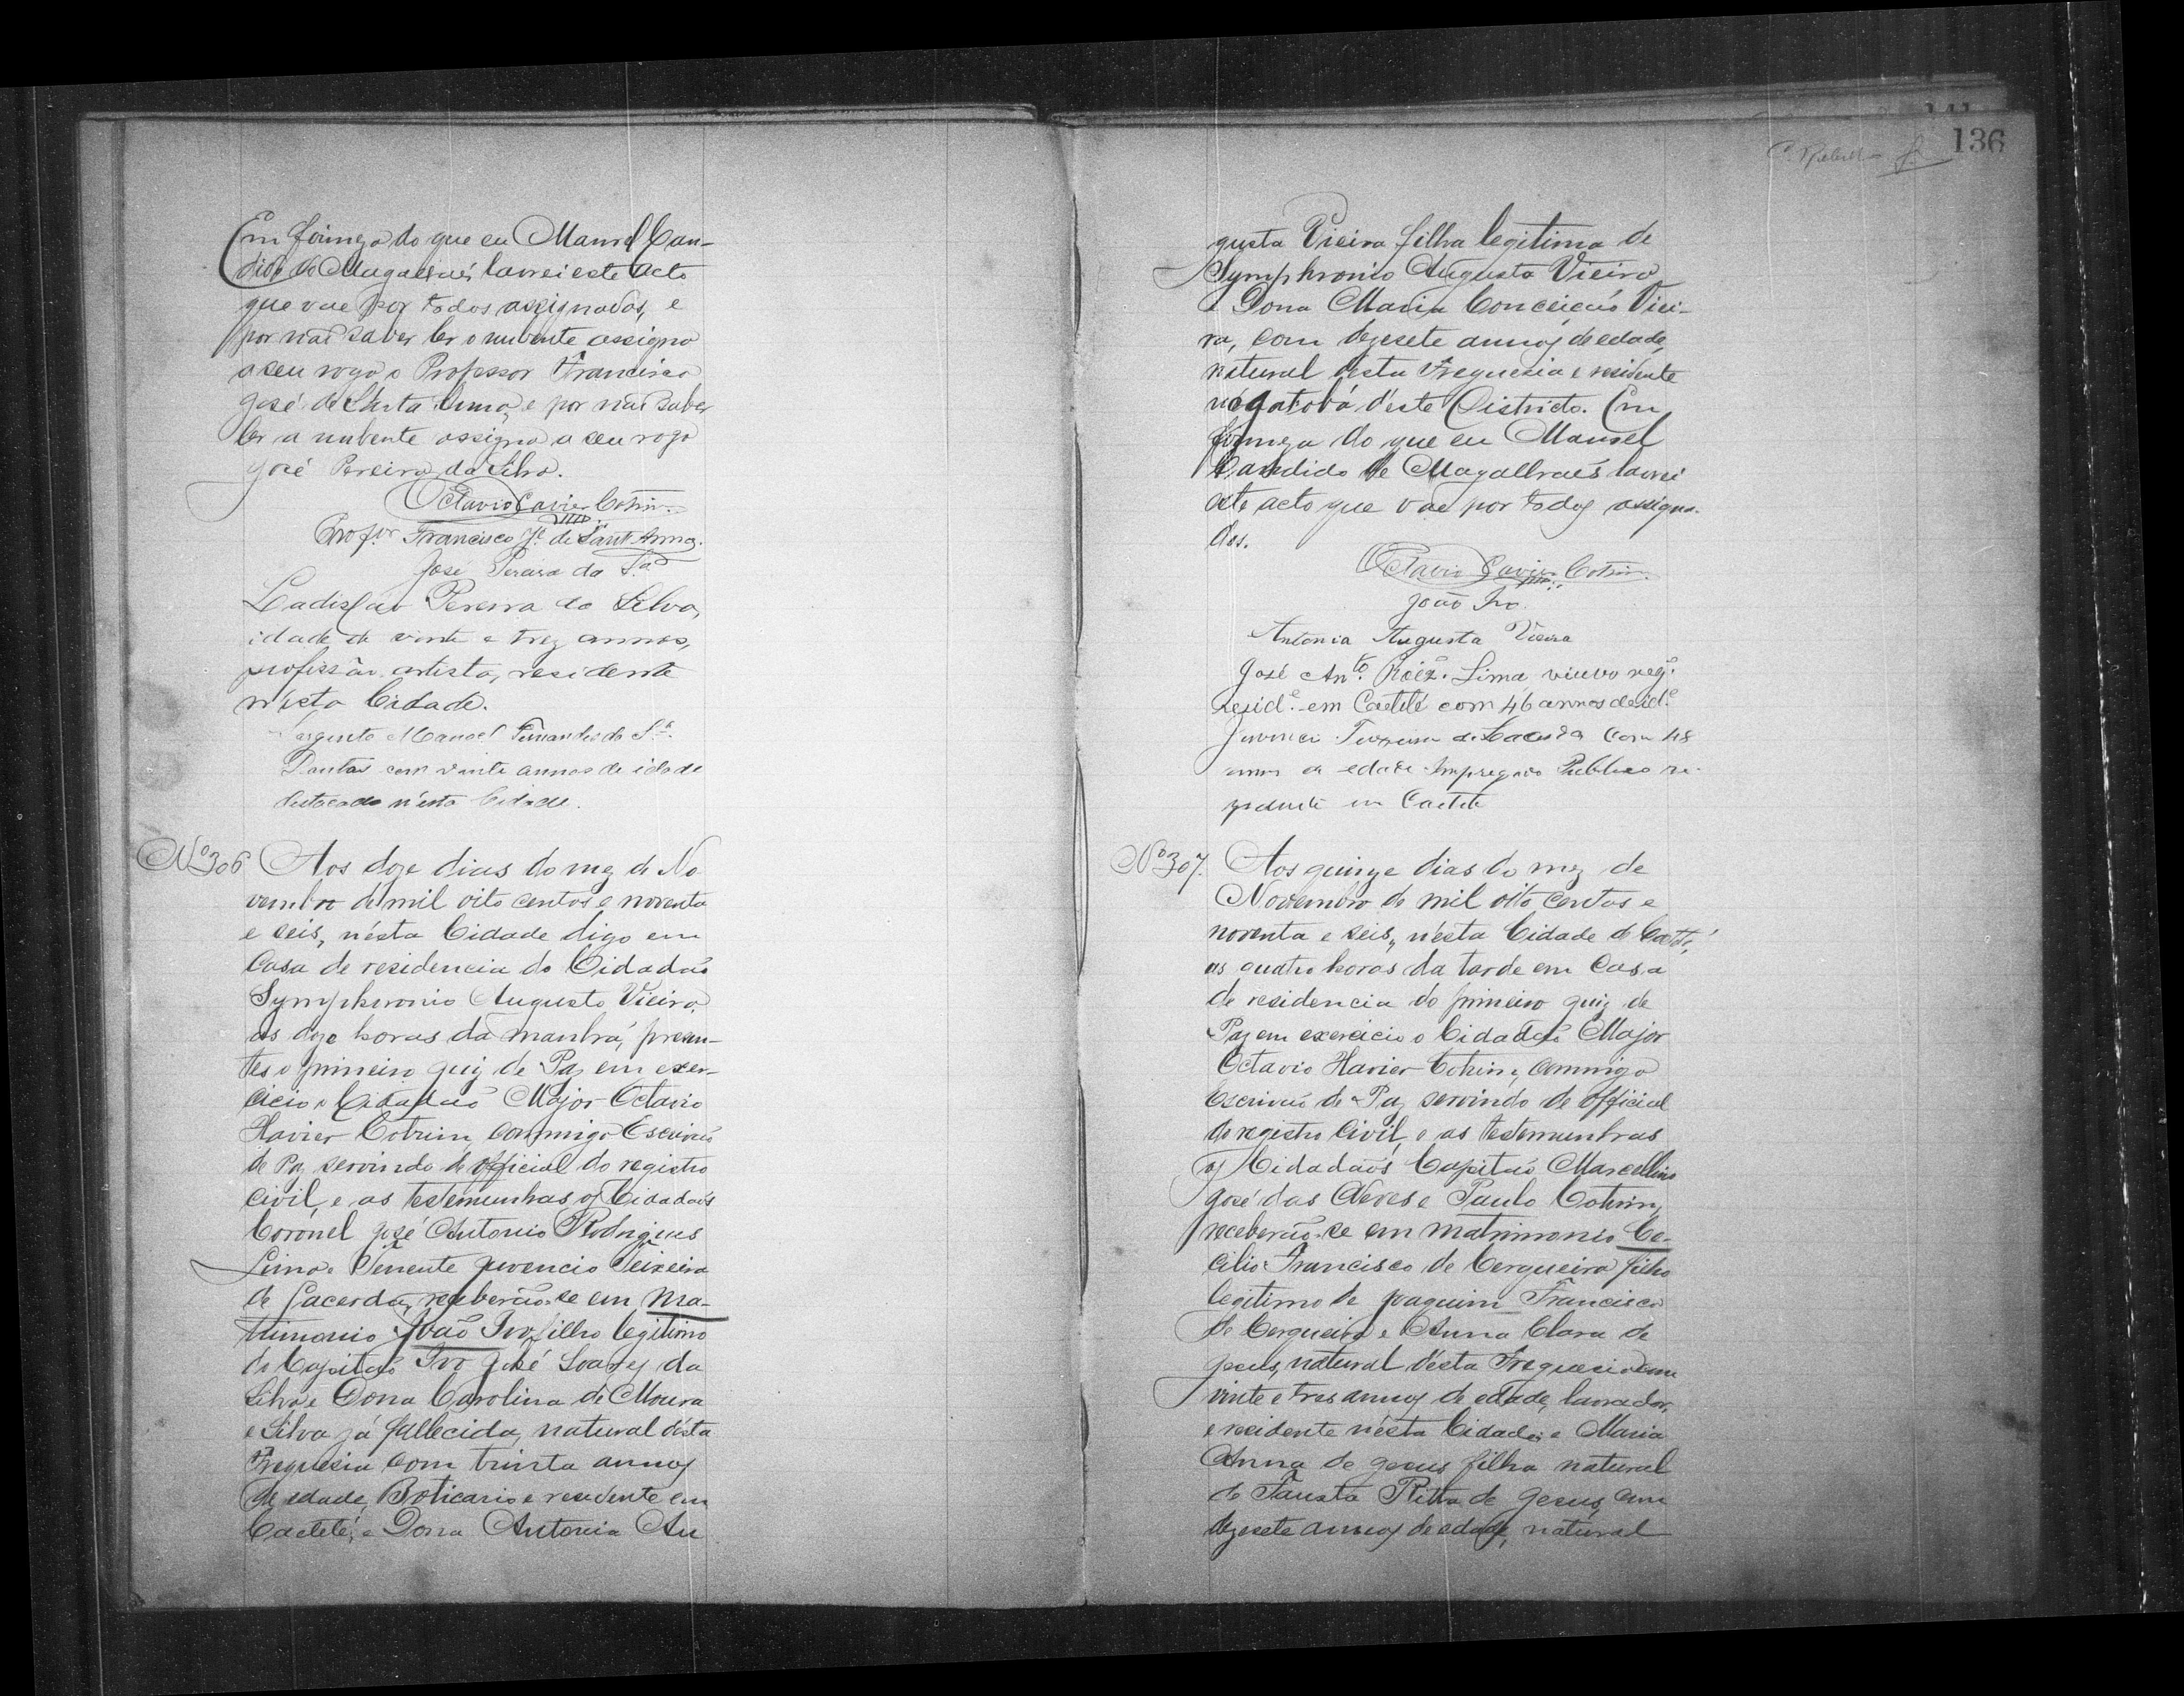 Em firmeza do que eu Manoel Can-
dido de Magalhaés lavrei este acto
que vae por todos assignados, e
por naõ saber ler o nubente assigna
a seu rogo o Professor Francisco
José de Santa Anna, e por naõ saber
ler a nubente assigna a seu rogo
José Pereira da Silva.
Octavio Xavier Cotrim.
Profor Francisco Je de Sant'Anna.
José Pereira da Sa
Ladisláo Pereira da Silva,
idade de vinte e trez annos,
profissão artista, residente
n'esta Cidade.
Sargento Manoel Fernandes da Sa.
Dantas com vinte annos de idade
destacado n'esta Cidade.
No 306 Aos doze dias do mez de No
vembro de mil oito centos e noventa
e seis, nésta Cidade digo em
Casa de residencia do Cidadaõ
Symphronio Augusto Vieira,
as doze horas da manhã, presen-
tes o primeiro quiz de Paz em exer-
cicio o Cidadaõ Major Octavio
Xavier Cotrim, commigo Escrivaõ
de Paz servindo de official do registro
Civil, e as testemunhas os Cidadaõs
Coronel José Antonio Rodrigues
Lima e Tenente Juvencio Teixeira
de Lacerda, receberaõ-se em ma-
trimonio João Ivo, filho legitimo
do Capitaõ Ivo José Soares da
Silva e Dona Carolina de Moura
e Silva já fallecida, natural désta
Freguesia com trinta annos
de edade, Boticario e residente em
Caeteté, e Dona Antonia Au
136
gusta Vieira filha legitima de
Symphronio Augusto Vieira
e Dona Maria Conceicaõ Viei-
ra, com dezesete annos de edade,
natural desta Freguesia e residente
no d'este Districto. Em
firmeza do que eu Manoel
Candido de Magalhaés lavrei
este acto que vae por todos assigna-
dos.
Octavio Xavier Cotrim.
João Ivo.
Antonia Augusta Vieira
José Anto. Roiz. Lima viuvo neg.
reside. em Caeteté com 46 annos de ide.
Juvencio Teixeira de Lacerda com 48
annos de edade Empregado Publico re-
zidente em Caeteté
No 307. Aos quinze dias do mez de
Novembro de mil oito centos e
noventa e seis, n'esta Cidade de Caeteté,
as quatro horas da tarde em Casa
de residencia do primeiro quiz de
Paz em exercicio o Cidadaõ Major
Octavio Xavier Cotrim, commigo
Escrivaõ de Paz servindo de official
do registro Civil, e as testemunhas
os Cidadaõs Capitaõ Marcellino
José das Neves e Paulo Cotrim,
receberaõ-se em matrimonio Ce-
cilio Francisco de Cerqueira filho
legitimo de Joaquim Francisco
de Cerqueira e Anna Clara de
Jesus, natural d'ésta Freguesia com
vinte e tres annos de edade, lavrador,
e residente nésta Cidade, e Maria
Anna de Jesus filha natural
de Fausta Ritta de Jesus, com
dezesete annos de edade, natural